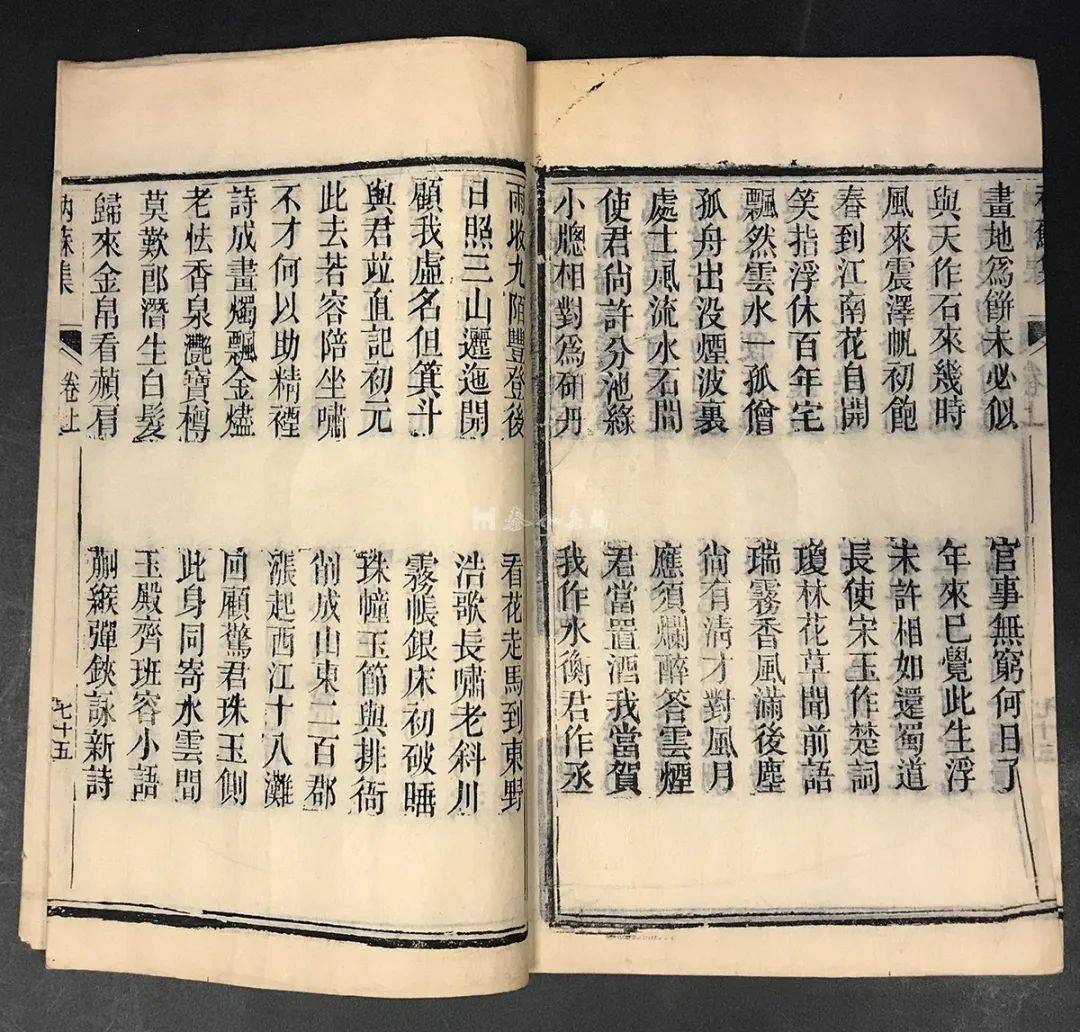 畫地爲餅未必似
官事無窮何日了
與天作石來幾時
年來已覺此生浮
風來震澤帆初飽
未許相如還蜀道
春到江南花自開
長使宋玉作楚詞
笑指浮休百年宅
瓊林花草聞前語
飄然雲水一孤僧
瑞霧香風滿後塵
孤舟出没煙波裏
尚有清才對風月
處士風流水石間
應須爛醉答雲煙
使君尚許分池緑
君當置酒我當賀
小牕相對爲研丹
我作水衡君作丞
雨收九陌豐登後
看花走馬到東野
日照三山邐迤開
浩歌長嘯老斜川
顧我虛名但箕斗
霧帳銀床初破睡
與君竝直記初元
珠幢玉節與排衙
此去若容陪坐嘯
削成山東二百郡
不才何以助精禋
漲起西江十八灘
詩成畫燭飄金燼
回顧驚君珠玉側
老怯香泉灔寶樽
此身同寄水雲間
莫歎郎潛生白髮
玉殿齊班容小語
歸來金帛看赬肩
蒯緱彈鋏詠新詩
衲蘇集
卷上
七十五